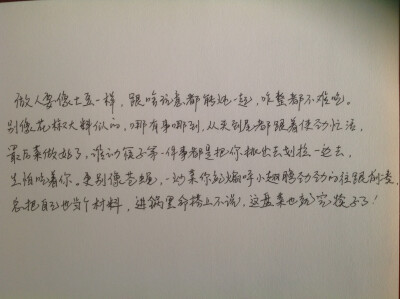 做人要像土豆一样，跟啥玩意都能炖一起，咋整都不难吃。
别像花椒大料似的，哪有事哪到，从头到尾都跟着使劲忙活，
最后菜做好了，谁动筷子第一件事都是把你挑出去划拉一边去，
生怕吃着你。更别像苍蝇，一炒菜你就煽呼小翅膀劲劲的往跟前凑，
总把自己也当个材料，进锅里命搭上不说，这盘菜也就完犊子了！